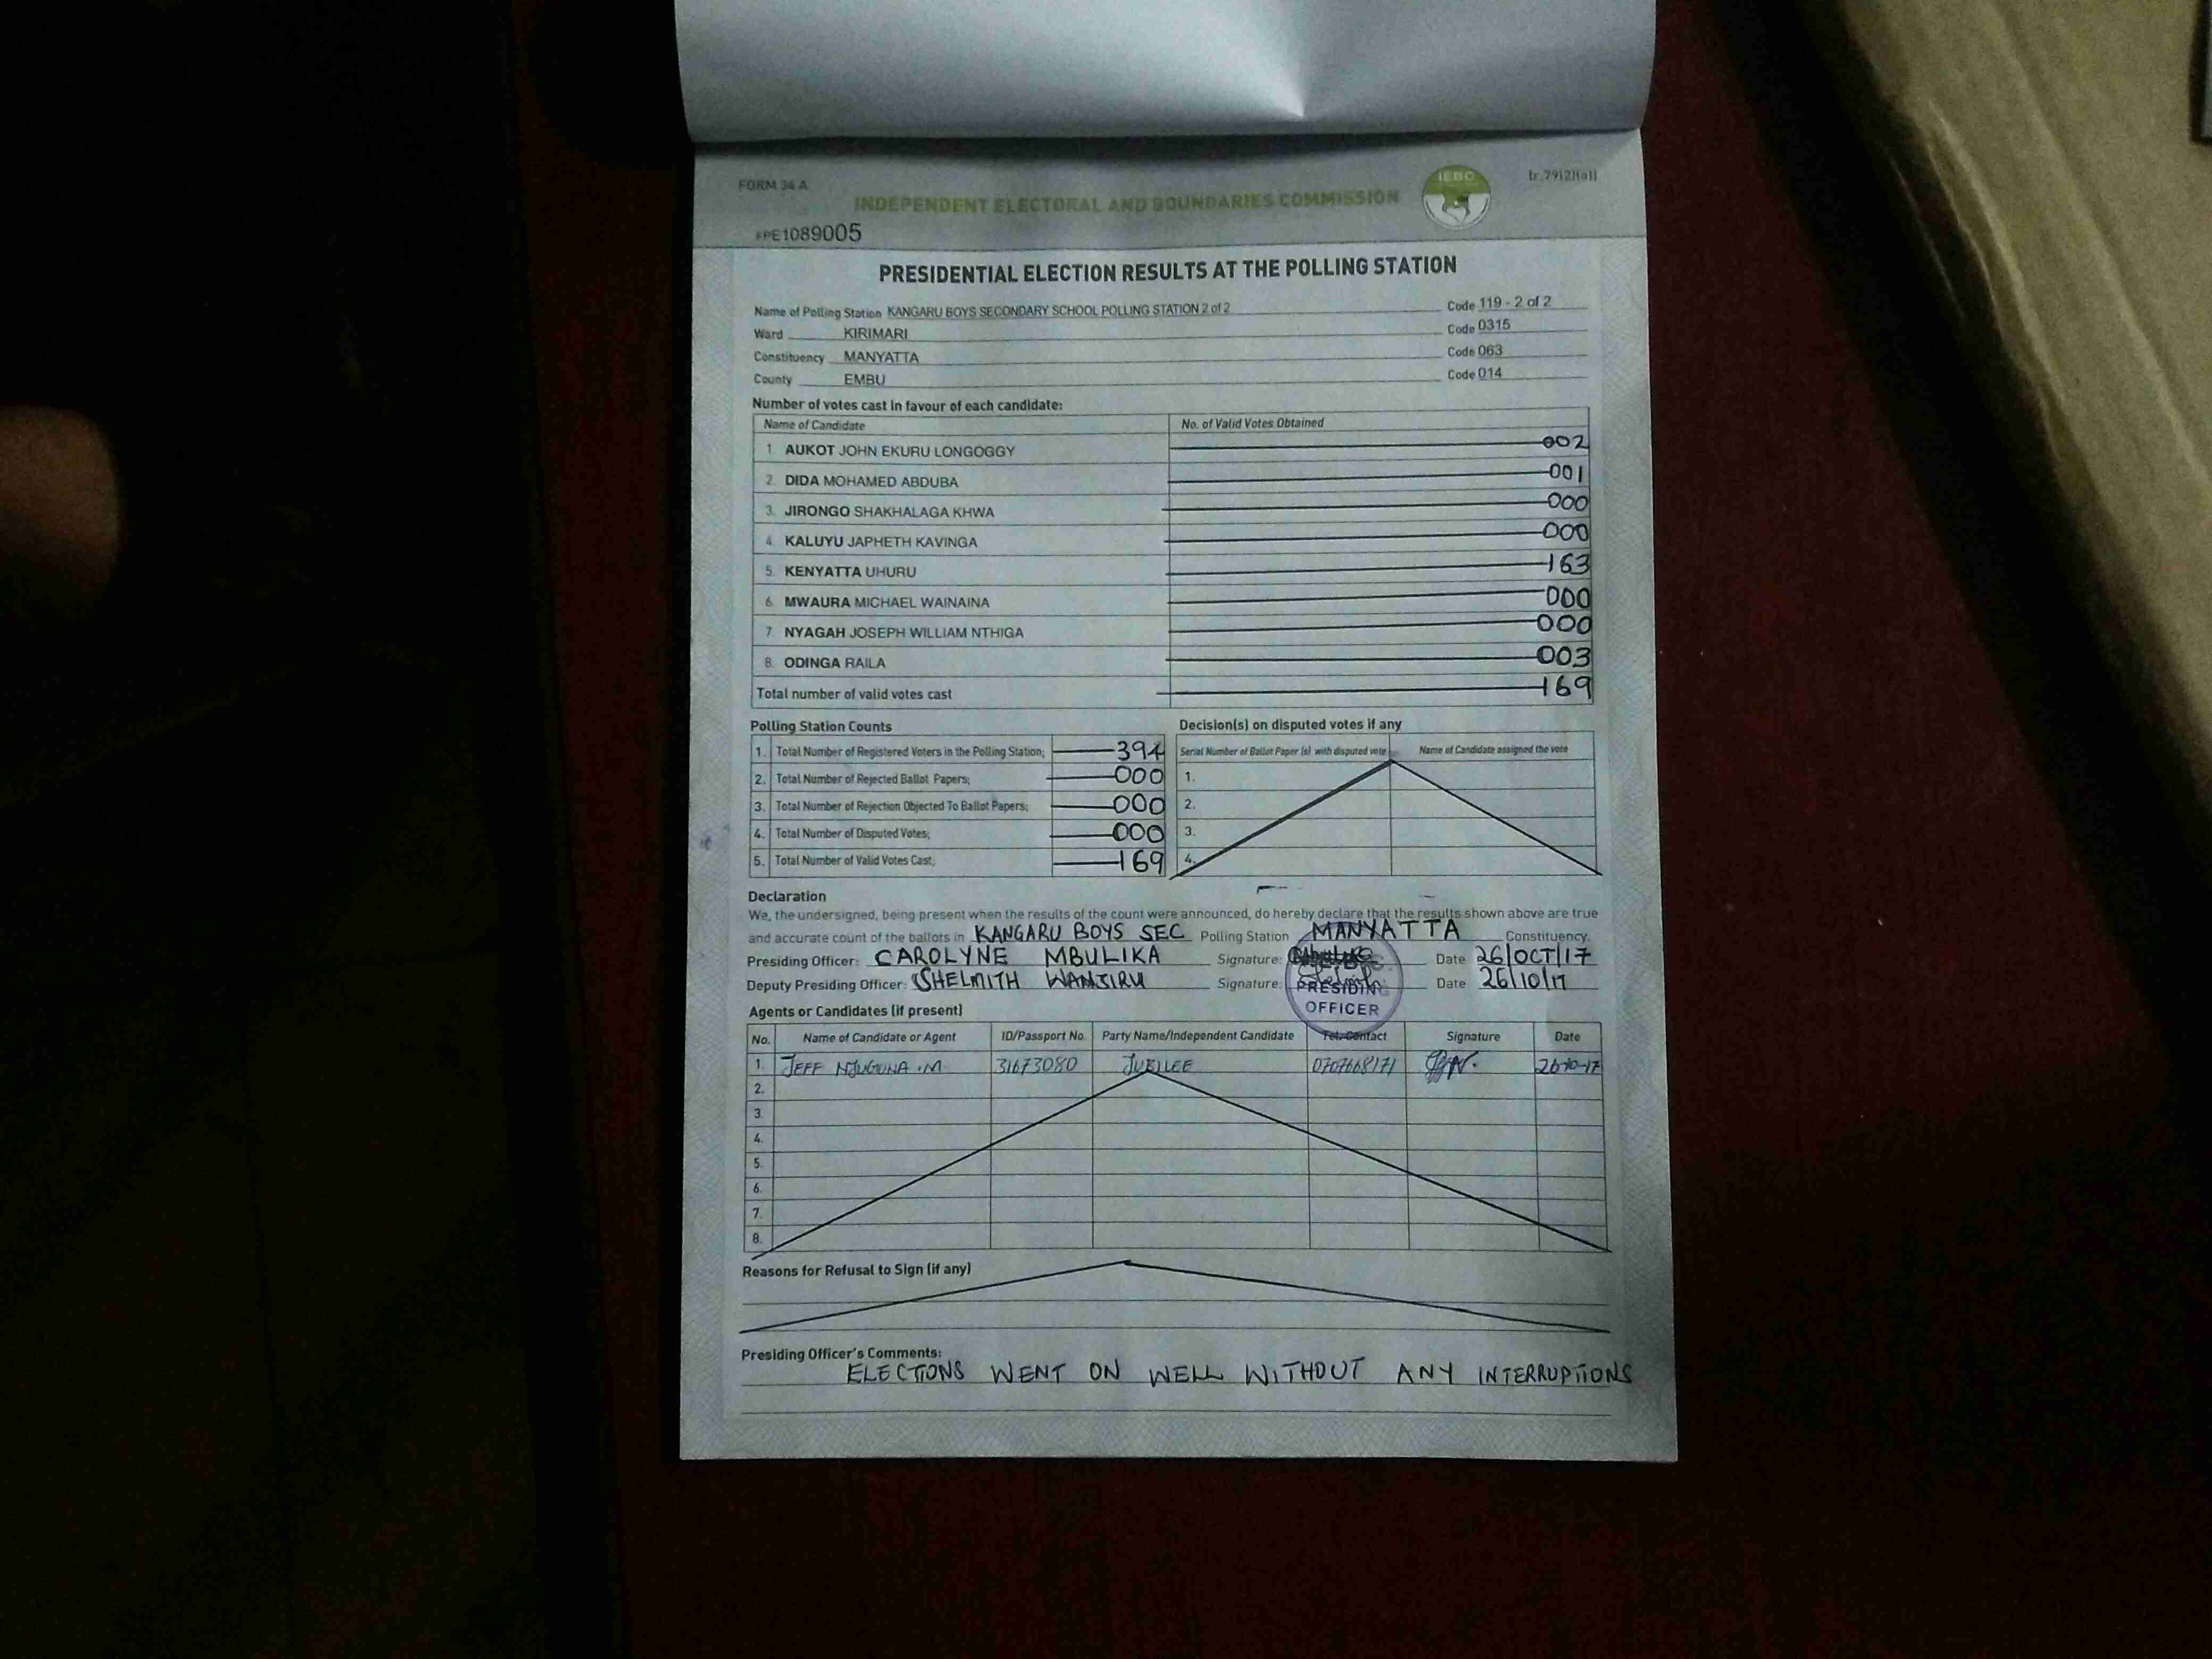 FORM 34 A
(r.79(2)(a))
IEBC
INDEPENDENT ELECTORAL AND BOUNDARIES COMMISSION
#PE1089005
PRESIDENTIAL ELECTION RESULTS AT THE POLLING STATION
Name of Polling Station KANGARU BOYS SECONDARY SCHOOL POLLING STATION 2 of 2 Code 119 - 2 of 2
Ward KIRIMARI Code 0315
Constituency MANYATTA Code 063
County EMBU Code 014
Number of votes cast in favour of each candidate:
Name of Candidate No. of Valid Votes Obtained
1. AUKOT JOHN EKURU LONGOGGY 002
2. DIDA MOHAMED ABDUBA 001
3. JIRONGO SHAKHALAGA KHWA 000
4. KALUYU JAPHETH KAVINGA 000
5. KENYATTA UHURU 163
6. MWAURA MICHAEL WAINAINA 000
7. NYAGAH JOSEPH WILLIAM NTHIGA 000
8. ODINGA RAILA 003
Total number of valid votes cast 169
Polling Station Counts Decision(s) on disputed votes if any
1. Total Number of Registered Voters in the Polling Station; 394 Serial Number of Ballot Paper (s) with disputed vote Name of Candidate assigned the vote
2. Total Number of Rejected Ballot Papers; 000 1.
3. Total Number of Rejection Objected To Ballot Papers; 000 2.
4. Total Number of Disputed Votes; 000 3.
5. Total Number of Valid Votes Cast; 169 4.
Declaration
We, the undersigned, being present when the results of the count were announced, do hereby declare that the results shown above are true
and accurate count of the ballots in KANGARU BOYS SEC Polling Station MANYATTA Constituency.
Presiding Officer: CAROLYNE MBULIKA Signature: Date 26/OCT/17
Deputy Presiding Officer: SHELMITH WANJIRU Signature: Date 26/10/17
PRESIDING
OFFICER
Agents or Candidates (if present)
No. Name of Candidate or Agent ID/Passport No. Party Name/Independent Candidate Tel. Contact Signature Date
1. JEFF NJUGUNA .M 31673080 JUBILEE 0707668171 26-10-17
2.
3.
4.
5.
6.
7.
8.
Reasons for Refusal to Sign (if any)
Presiding Officer's Comments:
ELECTIONS WENT ON WELL WITHOUT ANY INTERRUPTIONS